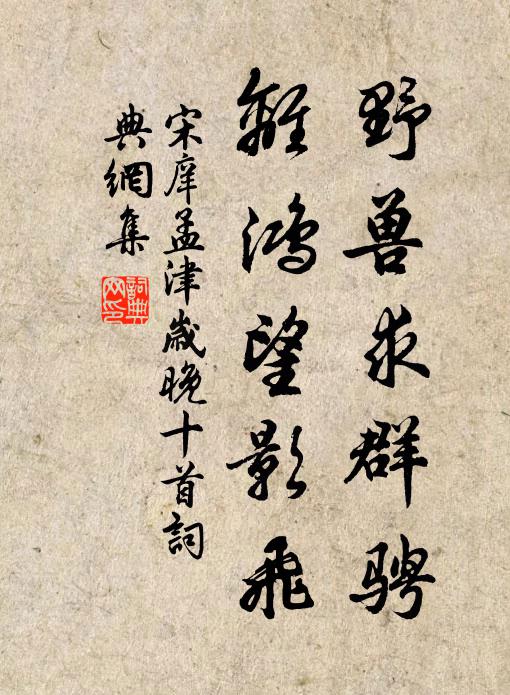 野兽求群骋
离鸿望影飛
宋庠孟津岁晚十首词
典网集
词典网印